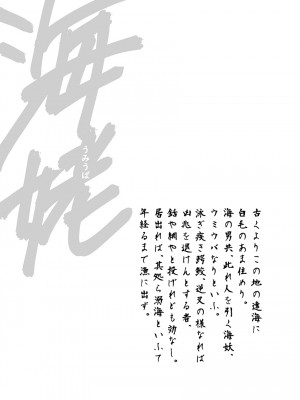 海姥
うみうば
古くよりこの地の遠海に
白毛のあま住めり。
海の男共、此れ人を引く海妖、
ウミウバなりといふ。
泳ぎ疾き鰐鮫、逆叉の様なれば
凶兆を退けんとする者、
銛や網やと投げれども効なし。
居出れば、其処ら溺海といふて
年経るまで漁に出ず。